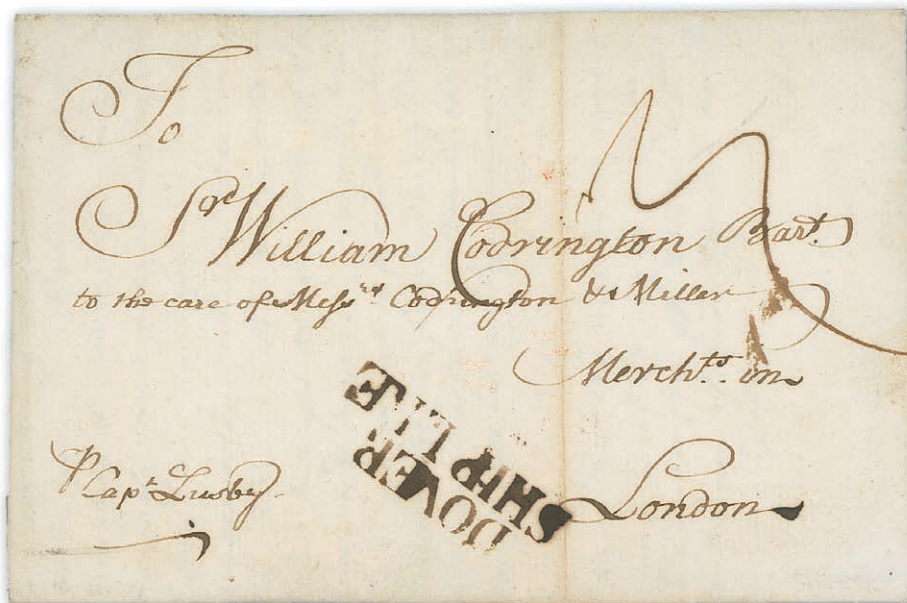 To
Sr. William Codrington Bart.
to the care of Messrs. Codrington & Miller
Merchts. in
London
P Capt. Lusby
DOVER
SHIP LRE